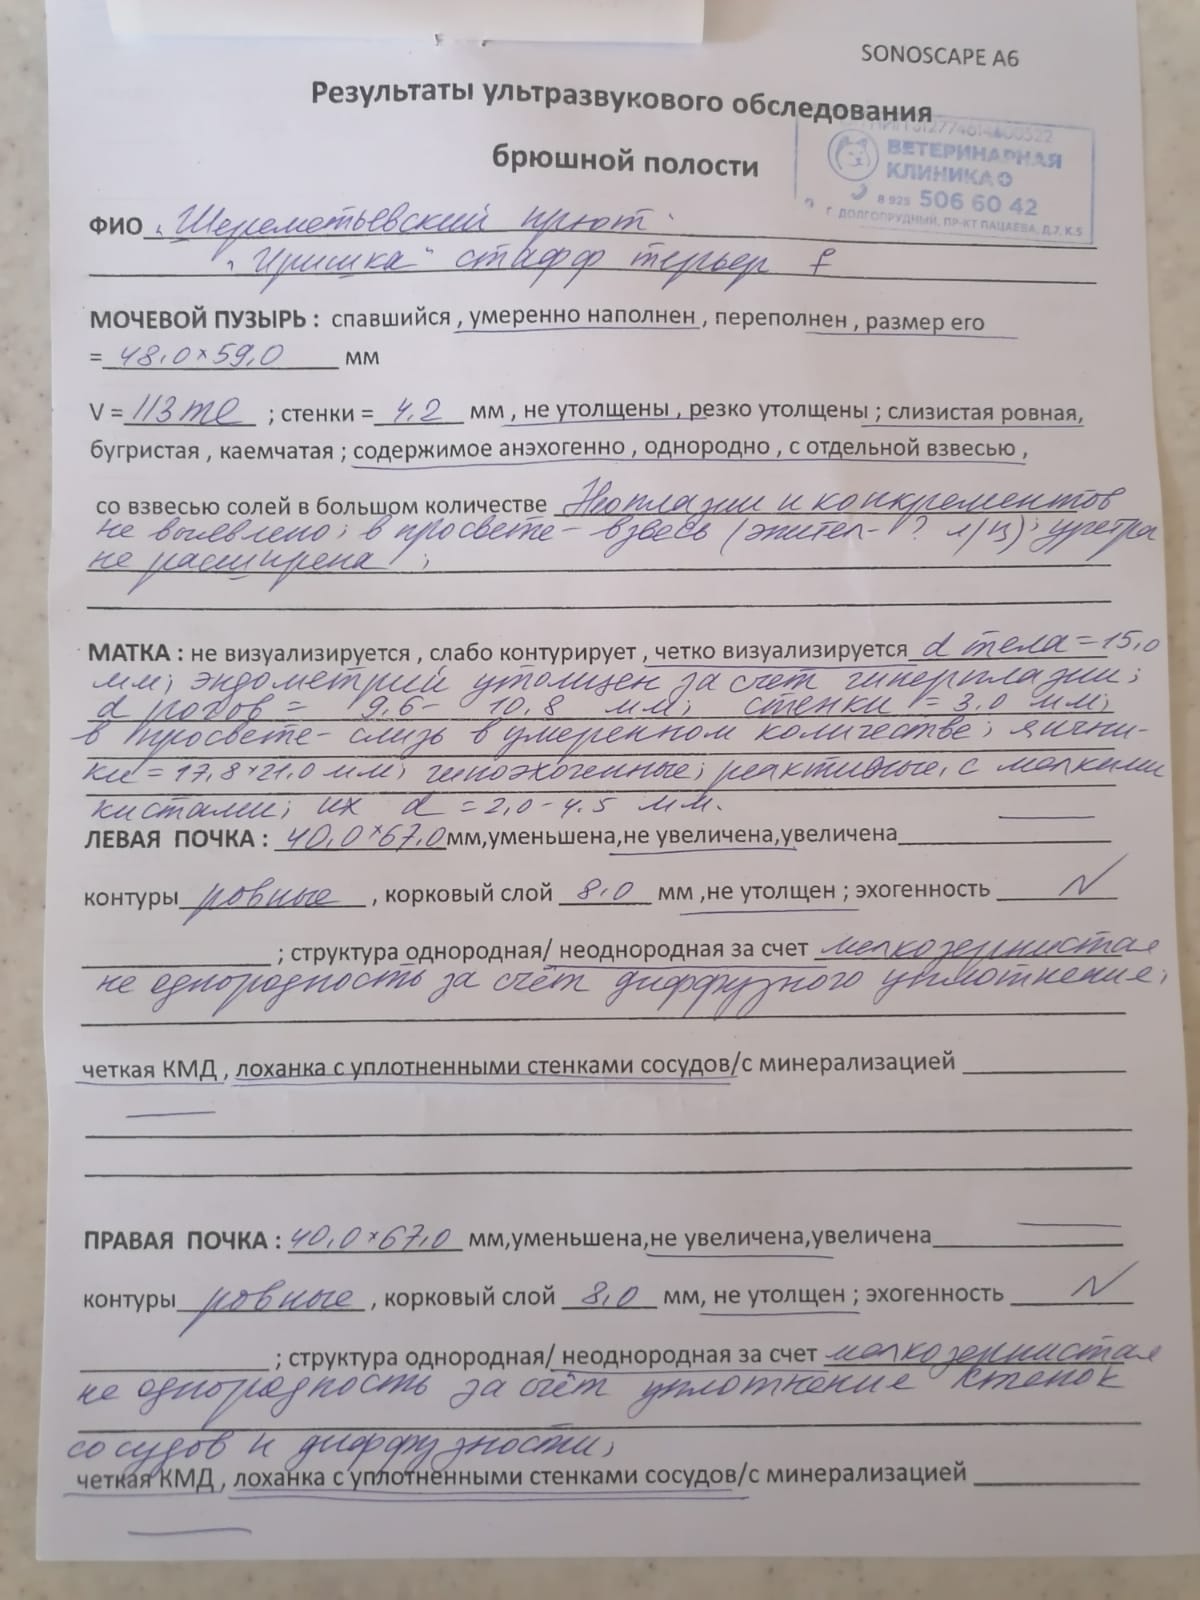 SONOSCAPE A6
Результаты ультразвукового обследования
брюшной полости
ВЕТЕРИНАРНАЯ
КЛИНИКА
8 925 506 60 42
Г. ДОЛГОПРУДНЫЙ, ПР-КТ ПАЦАЕВА, Д.7, К.5
ФИО "Шереметьевский приют"
"Иришка" стафф терьер f
МОЧЕВОЙ ПУЗЫРЬ : спавшийся , умеренно наполнен , переполнен , размер его
= 48,0×59,0 мм
V = 113 ml ; стенки = 4,2 мм , не утолщены , резко утолщены ; слизистая ровная,
бугристая , каемчатая ; содержимое анэхогенно , однородно , с отдельной взвесью ,
со взвесью солей в большом количестве Неоплазии и конкрементов
не выявлено; в просвете - взвесь (эпител- ? л/ц); уретра
не расширена ;
МАТКА : не визуализируется , слабо контурирует , четко визуализируется d тела = 15,0
мм; эндометрий утолщен за счет гиперплазии;
d рогов = 9,6 - 10,8 мм; стенки = 3,0 мм;
в просвете - слизь в умеренном количестве; яични-
ки = 17,8×21,0 мм; гипоэхогенные; реактивные, с мелкими
кистами; их d = 2,0 - 4,5 мм.
ЛЕВАЯ ПОЧКА : 40,0×67,0 мм,уменьшена,не увеличена,увеличена
контуры ровные , корковый слой 8,0 мм ,не утолщен ; эхогенность N
; структура однородная/ неоднородная за счет мелкозернистая
не однородность за счёт диффузного уплотнение;
четкая КМД , лоханка с уплотненными стенками сосудов/с минерализацией
ПРАВАЯ ПОЧКА : 40,0×67,0 мм,уменьшена,не увеличена,увеличена
контуры ровные , корковый слой 8,0 мм, не утолщен ; эхогенность N
; структура однородная/ неоднородная за счет мелкозернистая
не однородность за счёт уплотнение стенок
сосудов и диффузности;
четкая КМД , лоханка с уплотненными стенками сосудов/с минерализацией